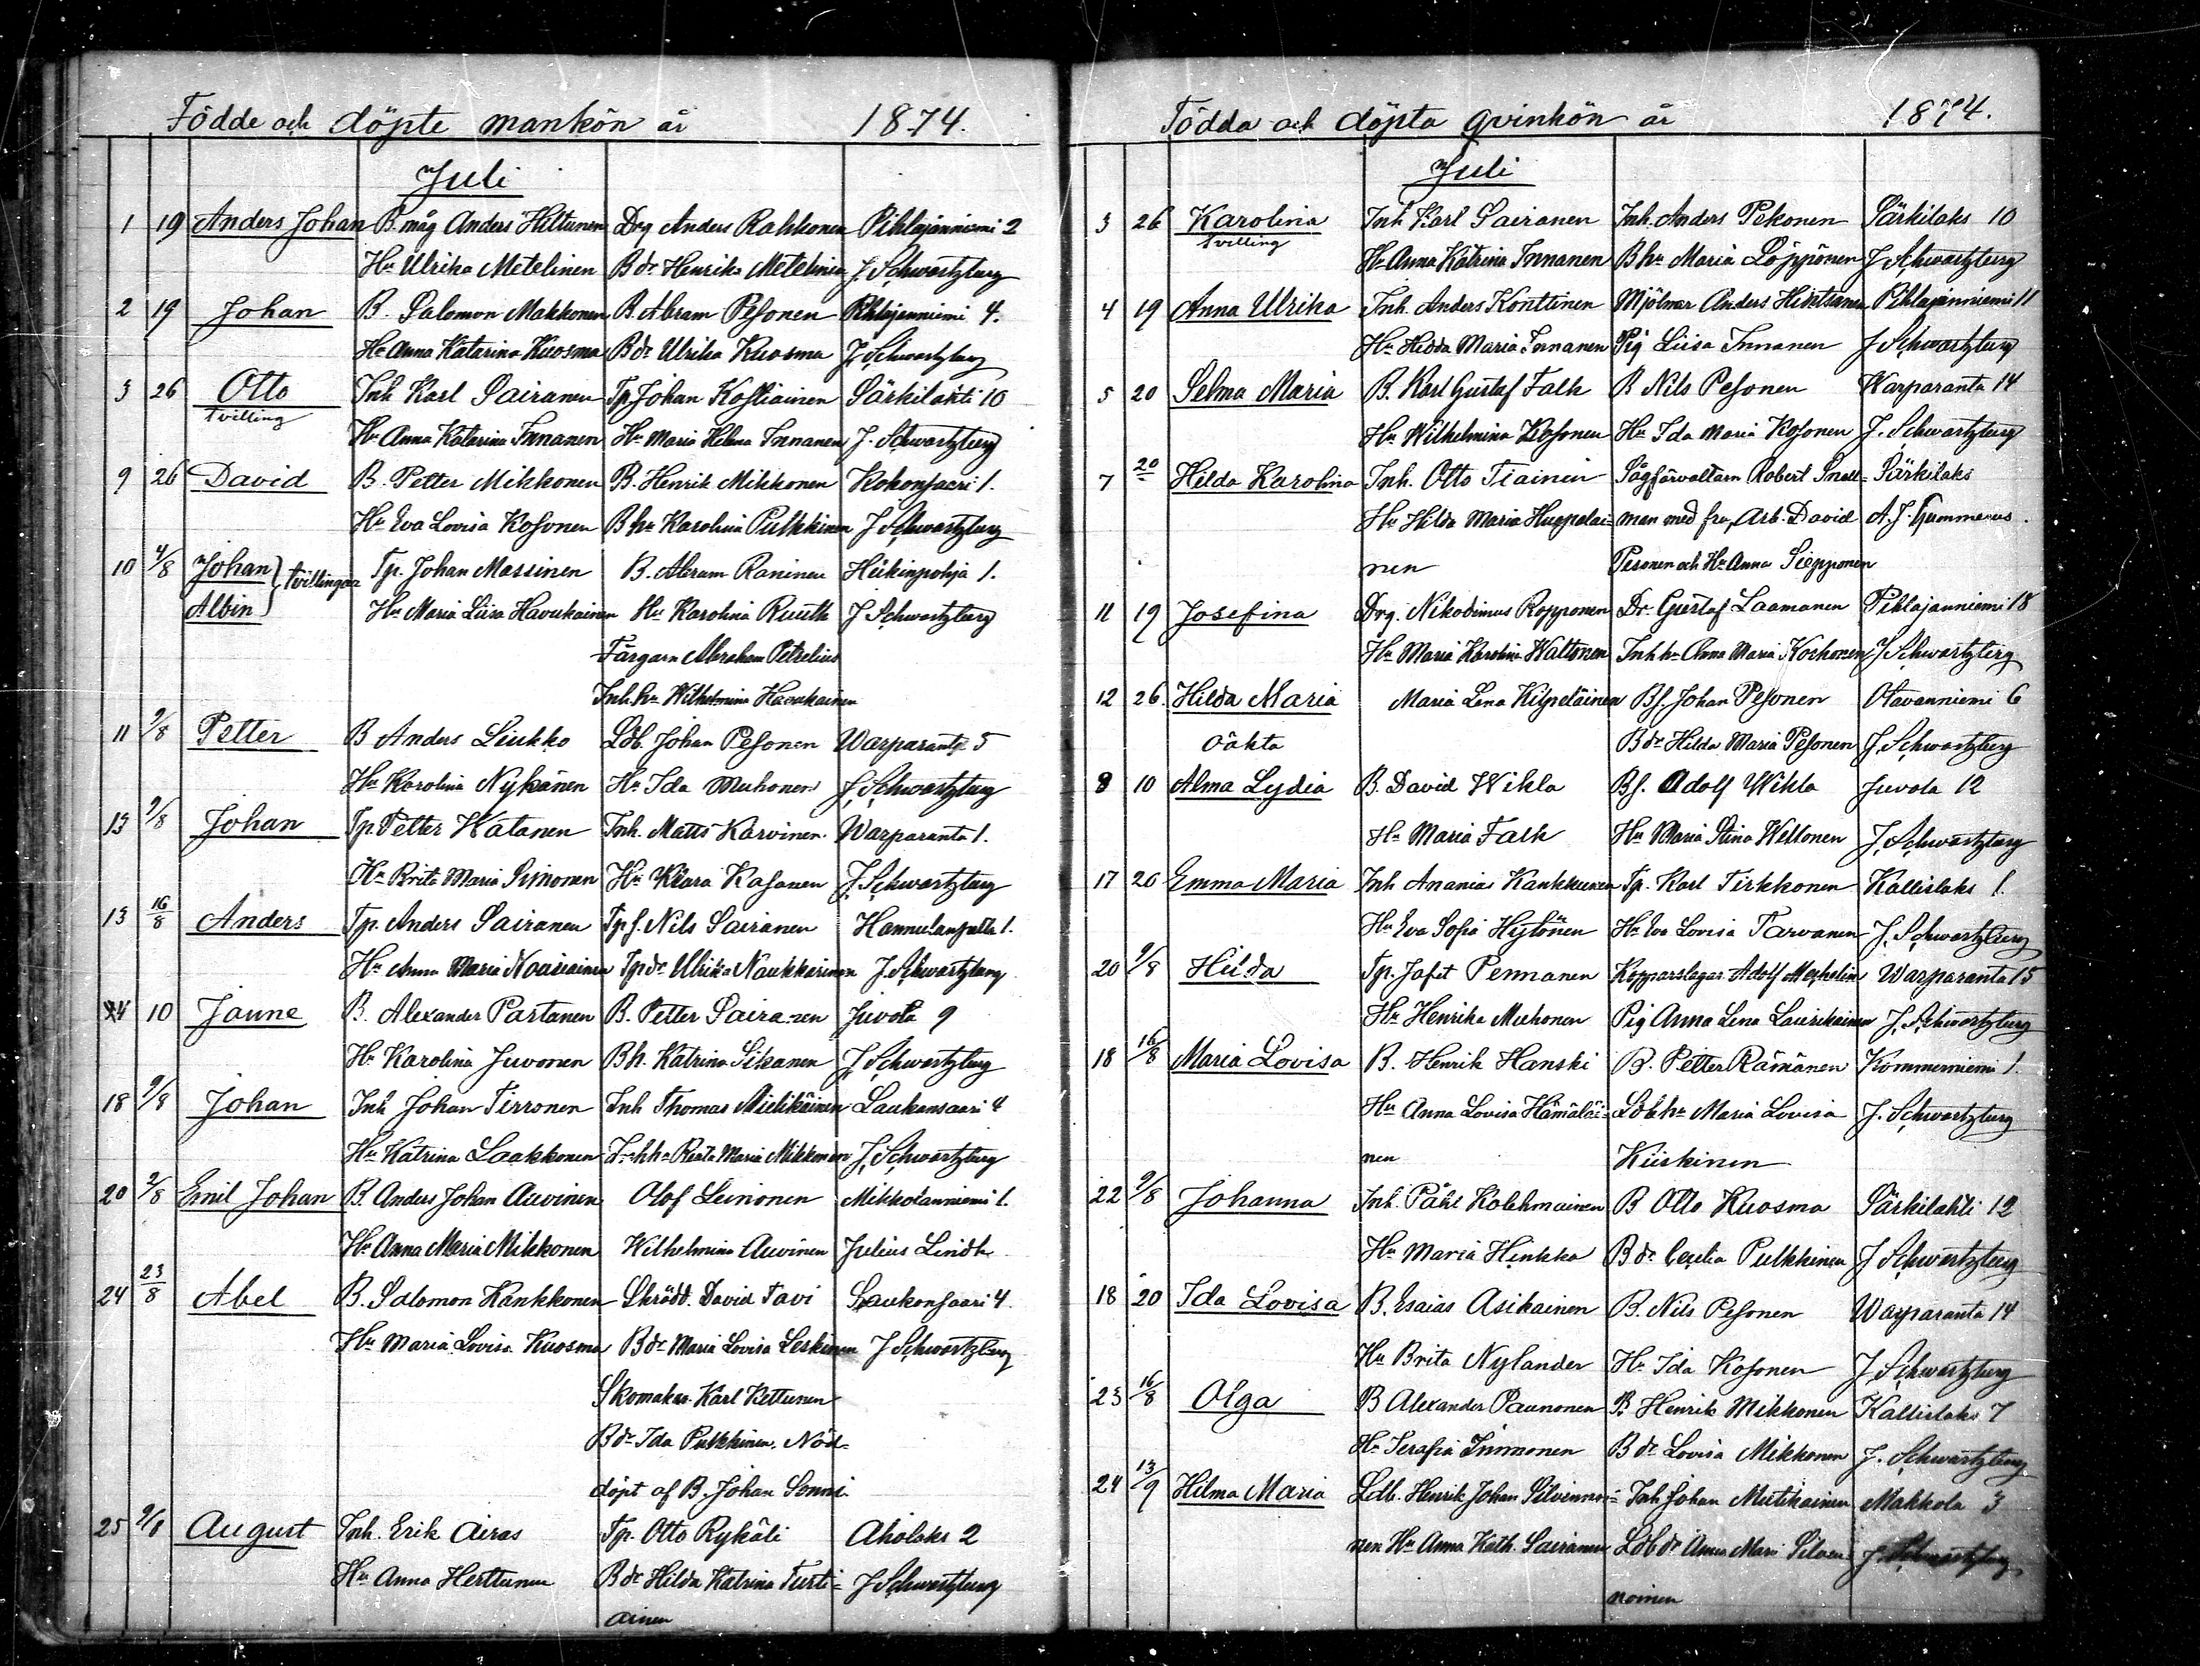 Födde och döpte mankön år 1874.
Juli
1 19 Anders Johan B. måg Anders Hiltunen Drg Anders Rahkonen Pihlajanniemi 2
Hu Ulrika Metelinen B dr Henrika Metelinen J. Schwartzberg
2 19 Johan B. Salomon Makkonen B. Abram Pesonen Pihlajanniemi 4.
Hu Anna Katarina Kuosma B dr Ulrika Kuosma J. Schwartzberg
3 26 Otto Inh Karl Sairanen Tp. Johan Kostiainen Särkilahti 10
tvilling
Hu Anna Katarina Innanen Hu Maria Helena Innanen J. Schwartzberg
9 26 David B. Petter Mikkonen B. Henrik Mikkonen Kokonsaari 1.
Hu Eva Lovisa Kosonen B hu Karolina Pulkkinen J Schwartzberg
10 4/8 Johan tvillingar Tp. Johan Massinen B. Abram Raninen Heikinpohja 1.
Albin Hu Maria Liisa Havukainen Hu Karolina Ruuth J Schwartzberg
Färgarn Abraham Petrelius
Inh. hu Wilhelmina Havukainen
11 9/8 Petter B Anders Liukko Ldb. Johan Pesonen Warparanta 5
Hu Karolina Nykänen Hu Ida Muhonen J. Schwartzberg
13 9/8 Johan Tp. Petter Hatanen Inh. Matts Karvinen Warparanta 1.
Hu Brita Maria Simonen Hu Klara Kasanen J. Schwartzberg
13 16/8 Anders Tp. Anders Sairanen Tp s. Nils Sairanen Hannulanpelto 1.
Hu Anna Maria Tp dr Ulrika Naukkarinen J. Schwartzberg
14 10 Janne B. Alexander Partanen B. Petter Sairanen Juvola 9
Hu Karolina Juvonen B h. Katrina Sikanen J. Schwartzberg
18 9/8 Johan Inh Johan Tirronen Inh Thomas Mielikäinen Laukansaari 4
Hu Katrina Laakkonen Inh hu Maria Mikkonen J. Schwartzberg
20 2/8 Emil Johan B. Anders Johan Auvinen Olof Leinonen Mikkolanniemi 1.
Hu Anna Maria Mikkonen Wilhelmina Auvinen Julius Lindh
24 23/8 Abel B. Salomon Kankkonen Skrädd. David Tavi Laukonsaari 4.
Hu Maria Lovisa Kuosma B dr Maria Lovisa Leskinen J Schwartzberg
Skomakar Karl Kettunen
B dr Ida Pulkkinen. Nöd-
döpt af B. Johan Sonni.
25 9/8 August Inh. Erik Airas Tp. Otto Rykäli Aholaks 2
Hu Anna Herttunen B dr Hilda Katrina Turti- J Schwartzberg
ainen
Födda och döpta qvinkön år 1874.
Juli
3 26 Karolina Inh Karl Sairanen Inh. Anders Pekonen Särkilaks 10
tvilling
Hu Anna Katrina Innanen B hu Maria Löppönen J Schwartzberg
4 19 Anna Ulrika Inh. Anders Konttinen Mjölnar Anders Pihlajanniemi 11
Hu Hedda Maria Innanen Pig Liisa Innanen J Schwartzberg
5 20 Selma Maria B. Karl Gustaf Falk B Nils Pesonen Warparanta 14
Hu Wilhelmina Kosonen Hu Ida Maria Kosonen J. Schwartzberg
7 20 Hilda Karolina Inh. Otto Tiainen Sågförvaltarn Robert Snell- Särkilaks
Hu Hilda Maria Huppolai- man med fru, Arb. David A. J. Gummerus.
nen Pesonen och Hu Anna Siepponen
11 19 Josefina Drg. Nikodimus Ropponen Dr. Gustaf Laamanen Pihlajanniemi 18
Hu Maria Karolina Waltonen Inh hu Anna Maria Korhonen J Schwartzberg
12 26. Hilda Maria Maria Lena Kilpeläinen B s. Johan Pesonen Otavanniemi 6
oäkta B dr Hilda Maria Pesonen J. Schwartzberg
8 10 Alma Lydia B. David Wikla B s. Adolf Wikla Juvola 12
Hu Maria Falk Hu Maria Stina Weltonen J. Schwartzberg
17 20 Emma Maria Inh Ananias Kankkunen Tp. Karl Tirkkonen Kallislaks 1.
Hu Eva Sofia Hytönen Hu Eva Lovisa Tarvanen J. Schwartzberg
20 9/8 Hilda Tp. Jafet Pennanen Kopparslagar Adolf Warparanta 15
Hu Henrika Muhonen Pig Anna Lena Laurikainen J. Schwartzberg
18 16/8 Maria Lovisa B. Henrik Hanski B. Petter Rämänen Kommerniemi 1.
Hu Anna Lovisa Hämäläi- Ldb hu Maria Lovisa J. Schwartzberg
nen Kiiskinen
22 9/8 Johanna Inh. Påhl Kolehmainen B Otto Kuosma Särkilahti 12
Hu Maria Hinkka B dr Cecilia Pulkkinen J Schwartzberg
18 20 Ida Lovisa B. Esaias Asikainen B. Nils Pesonen Warparanta 14
Hu Brita Nylander Hu Ida Kosonen J. Schwartzberg
23 16/8 Olga B Alexander Paunonen B. Henrik Mikkonen Kallislaks 7
Hu Serafia Immonen B dr Lovisa Mikkonen J. Schwartzberg
24 13/9 Hilma Maria Ldb. Henrik Johan Silvennoi- Inh Johan Mutikainen Makkola 3
nen Hu Anna Kath. Sairanen Ldb dr Anna Mari Silven- J. Schwartzberg
noinen